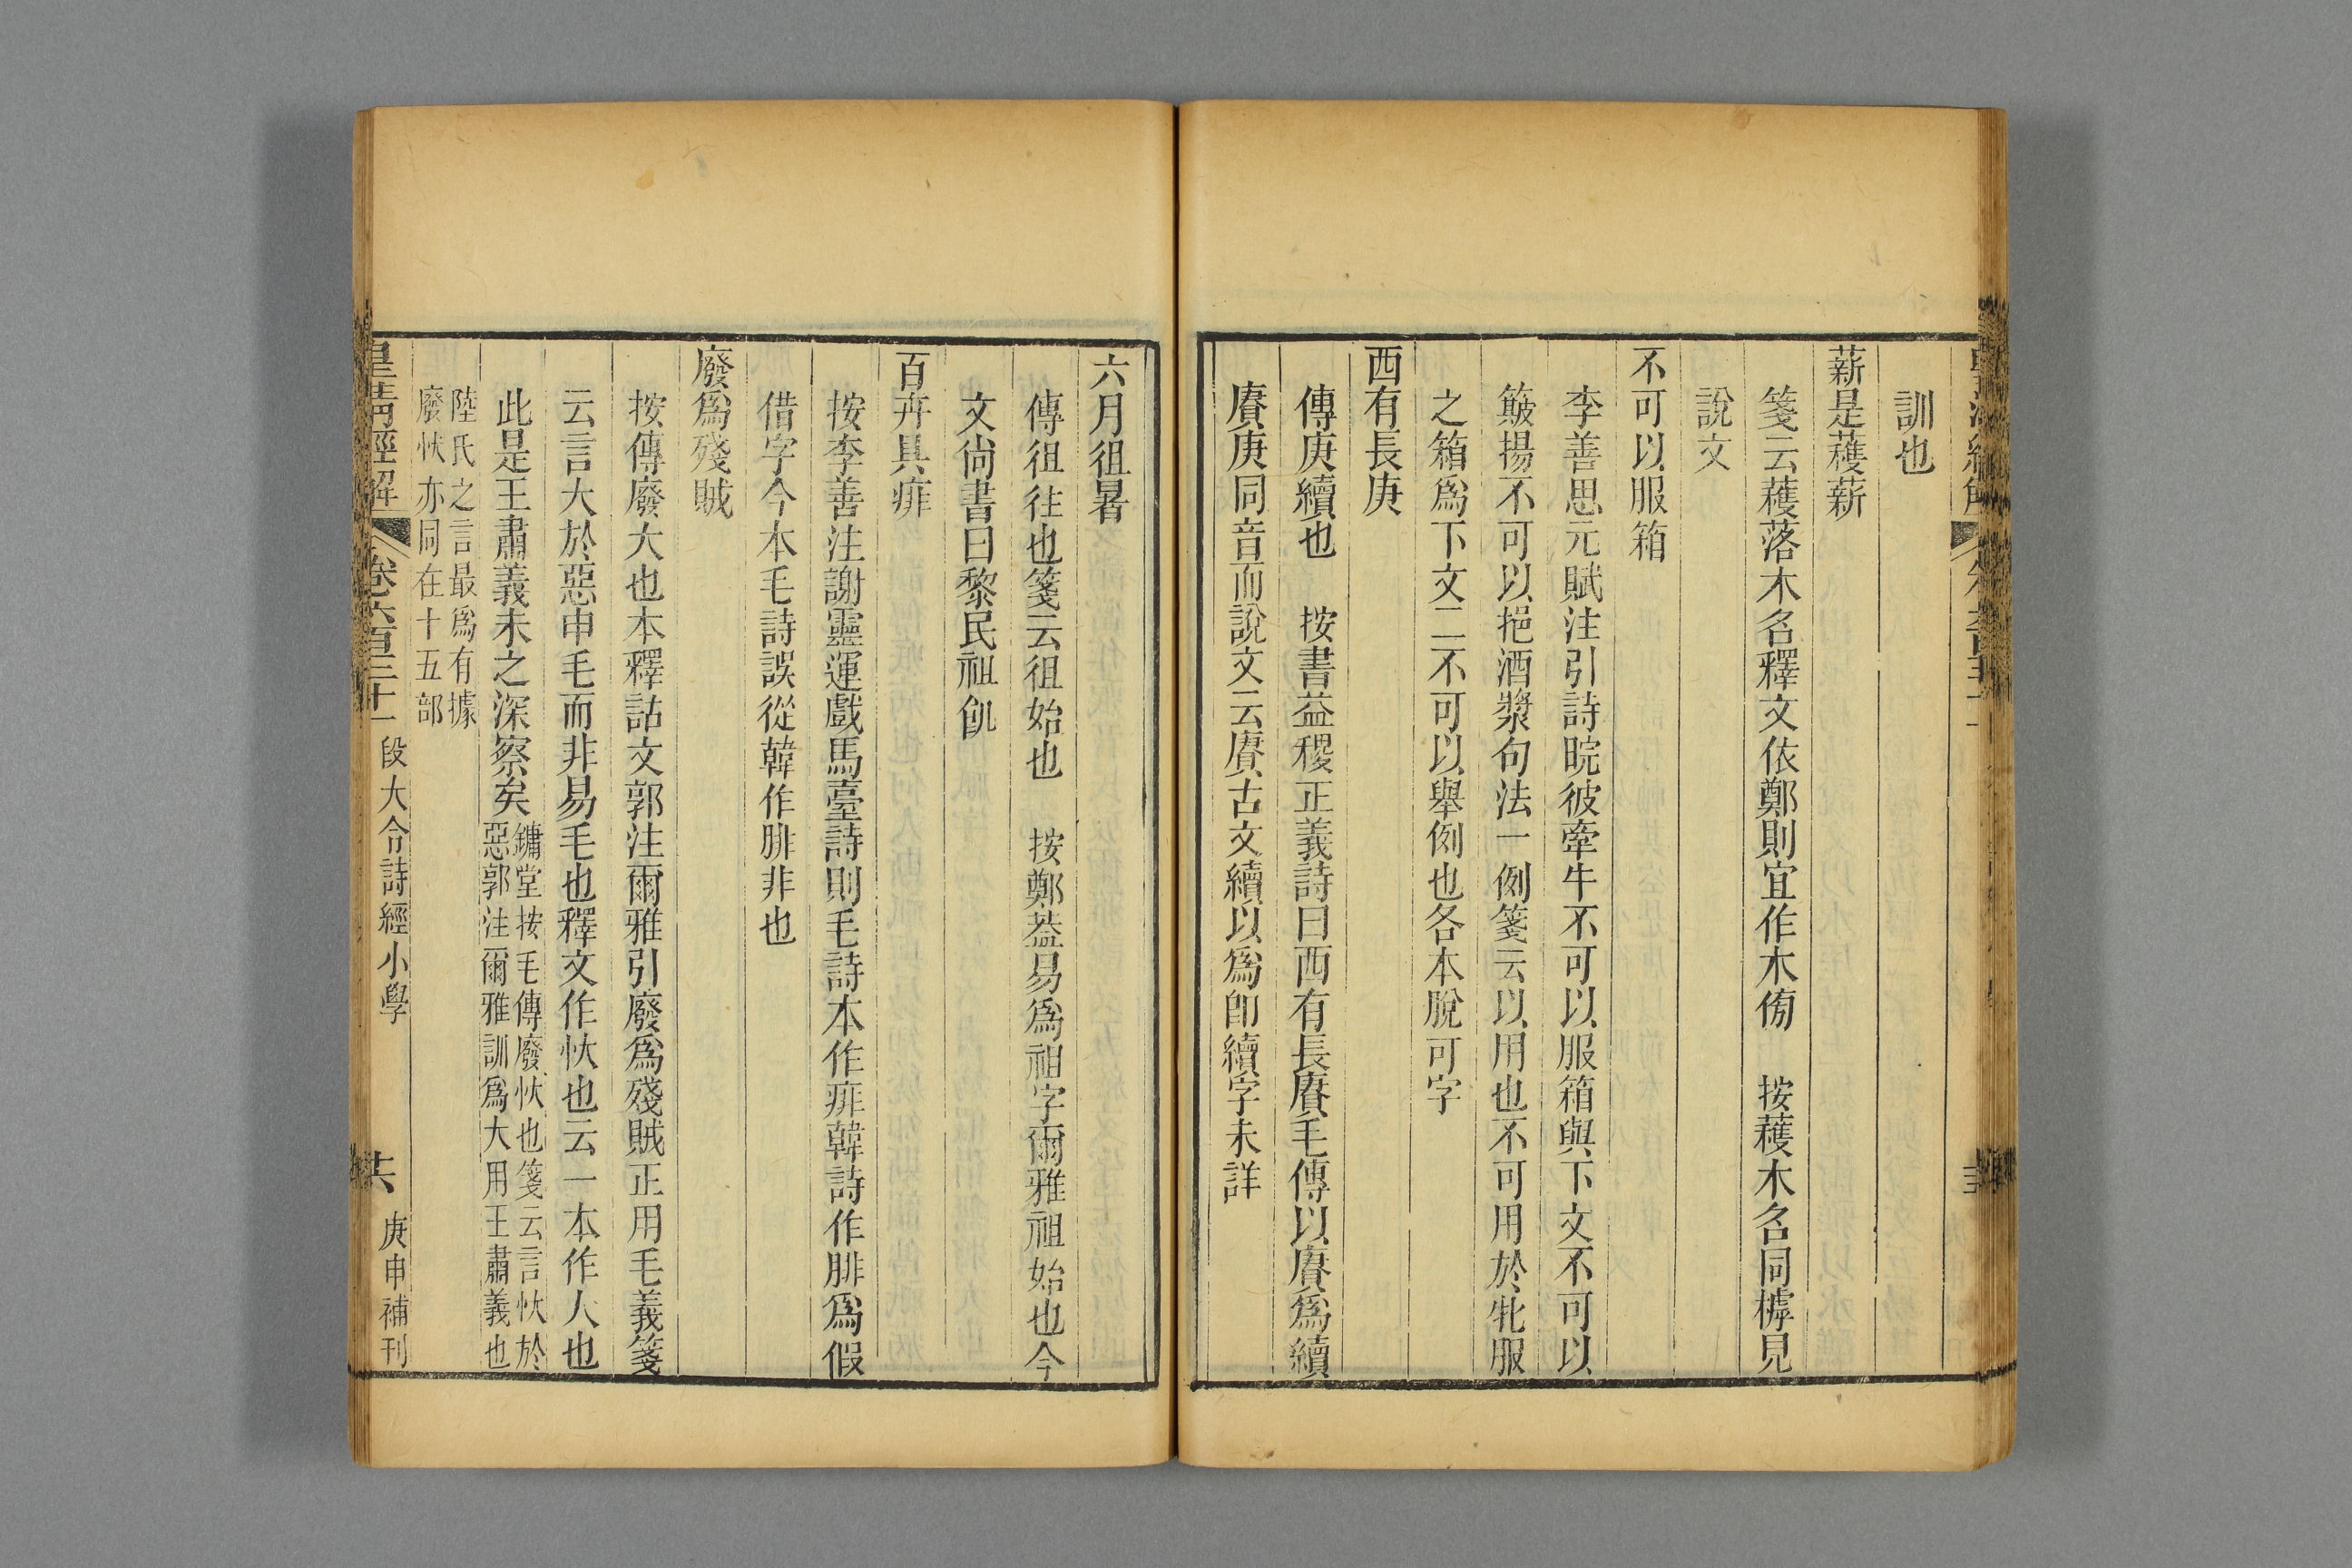 訓也
薪是穫薪
箋云穫落木名釋文依鄭則宜作木㑄　按穫木名同檴見
說文
不可以服箱
李善思元賦注引詩睆彼牽牛不可以服箱與下文不可以
簸揚不可以挹酒漿句法一例箋云以用也不可用於牝服
之箱爲下文二不可以舉例也各本脫可字
西有長庚
傳庚續也　按書益稷正義詩曰西有長賡毛傳以賡爲續
賡庚同音而說文云賡古文續以爲卽續字未詳
六月徂暑
傳徂往也箋云徂始也　按鄭葢易爲祖字爾雅祖始也今
文尙書曰黎民祖飢
百卉具痱
按李善注謝靈運戲馬臺詩則毛詩本作痱韓詩作腓爲假
借字今本毛詩誤從韓作腓非也
廢爲殘賊
按傳廢大也本釋詁文郭注爾雅引廢爲殘賊正用毛義箋
云言大於惡申毛而非易毛也釋文作忕也云一本作人也
此是王肅義未之深察矣鏞堂按毛傳廢忕也箋云言忕於
惡郭注爾雅訓爲大用王肅義也
陸氏之言最爲有據
廢忕亦同在十五部
皇淸經解　卷六百三十一　段大令詩經小學　共　庚申補刊